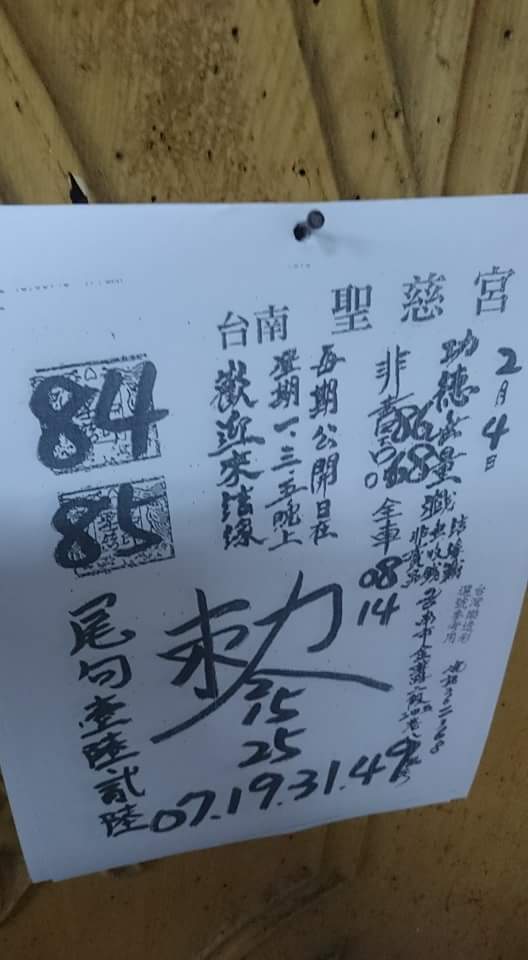 台南 聖慈宮
2月4日
功德無量
非賣品
86
68
全車
08
14
台灣樂透彩
選號參考用
每期公開日在
星期一.三.五晚上
歡迎來結緣
84
85
敕令
15
25
07.19.31.49
尾句壹陸貳陸